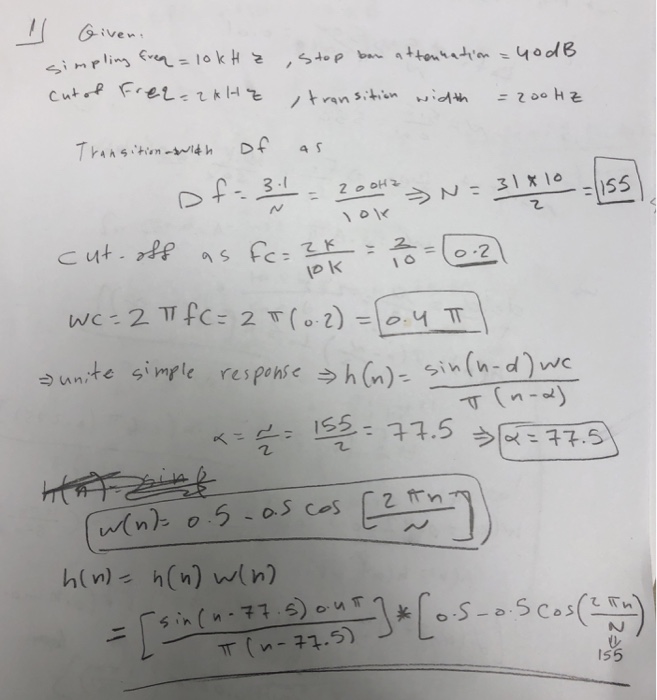 1) Given.
simpling freq = 10 kHz, stop ban attenuation = 40 dB
cutof Freq = 2 kHz, transition width = 200 Hz
Transition with Df as
Df = 3.1/N = 200Hz/10K ⇒ N = 31 × 10/2 = 155
cut-off as fc = 2K/10K = 2/10 = 0.2
wc = 2πfc = 2π(0.2) = 0.4π
⇒ unite simple response ⇒ h(n) = sin(n-α)wc/π(n-α)
α = N/2 = 155/2 = 77.5 ⇒ α = 77.5
w(n) = 0.5 - 0.5 cos [2πn/N]
h(n) = h(n) w(n)
= [sin(n-77.5)0.4π/π(n-77.5)] * [0.5 - 0.5 cos(2πn/N)
⇓
155